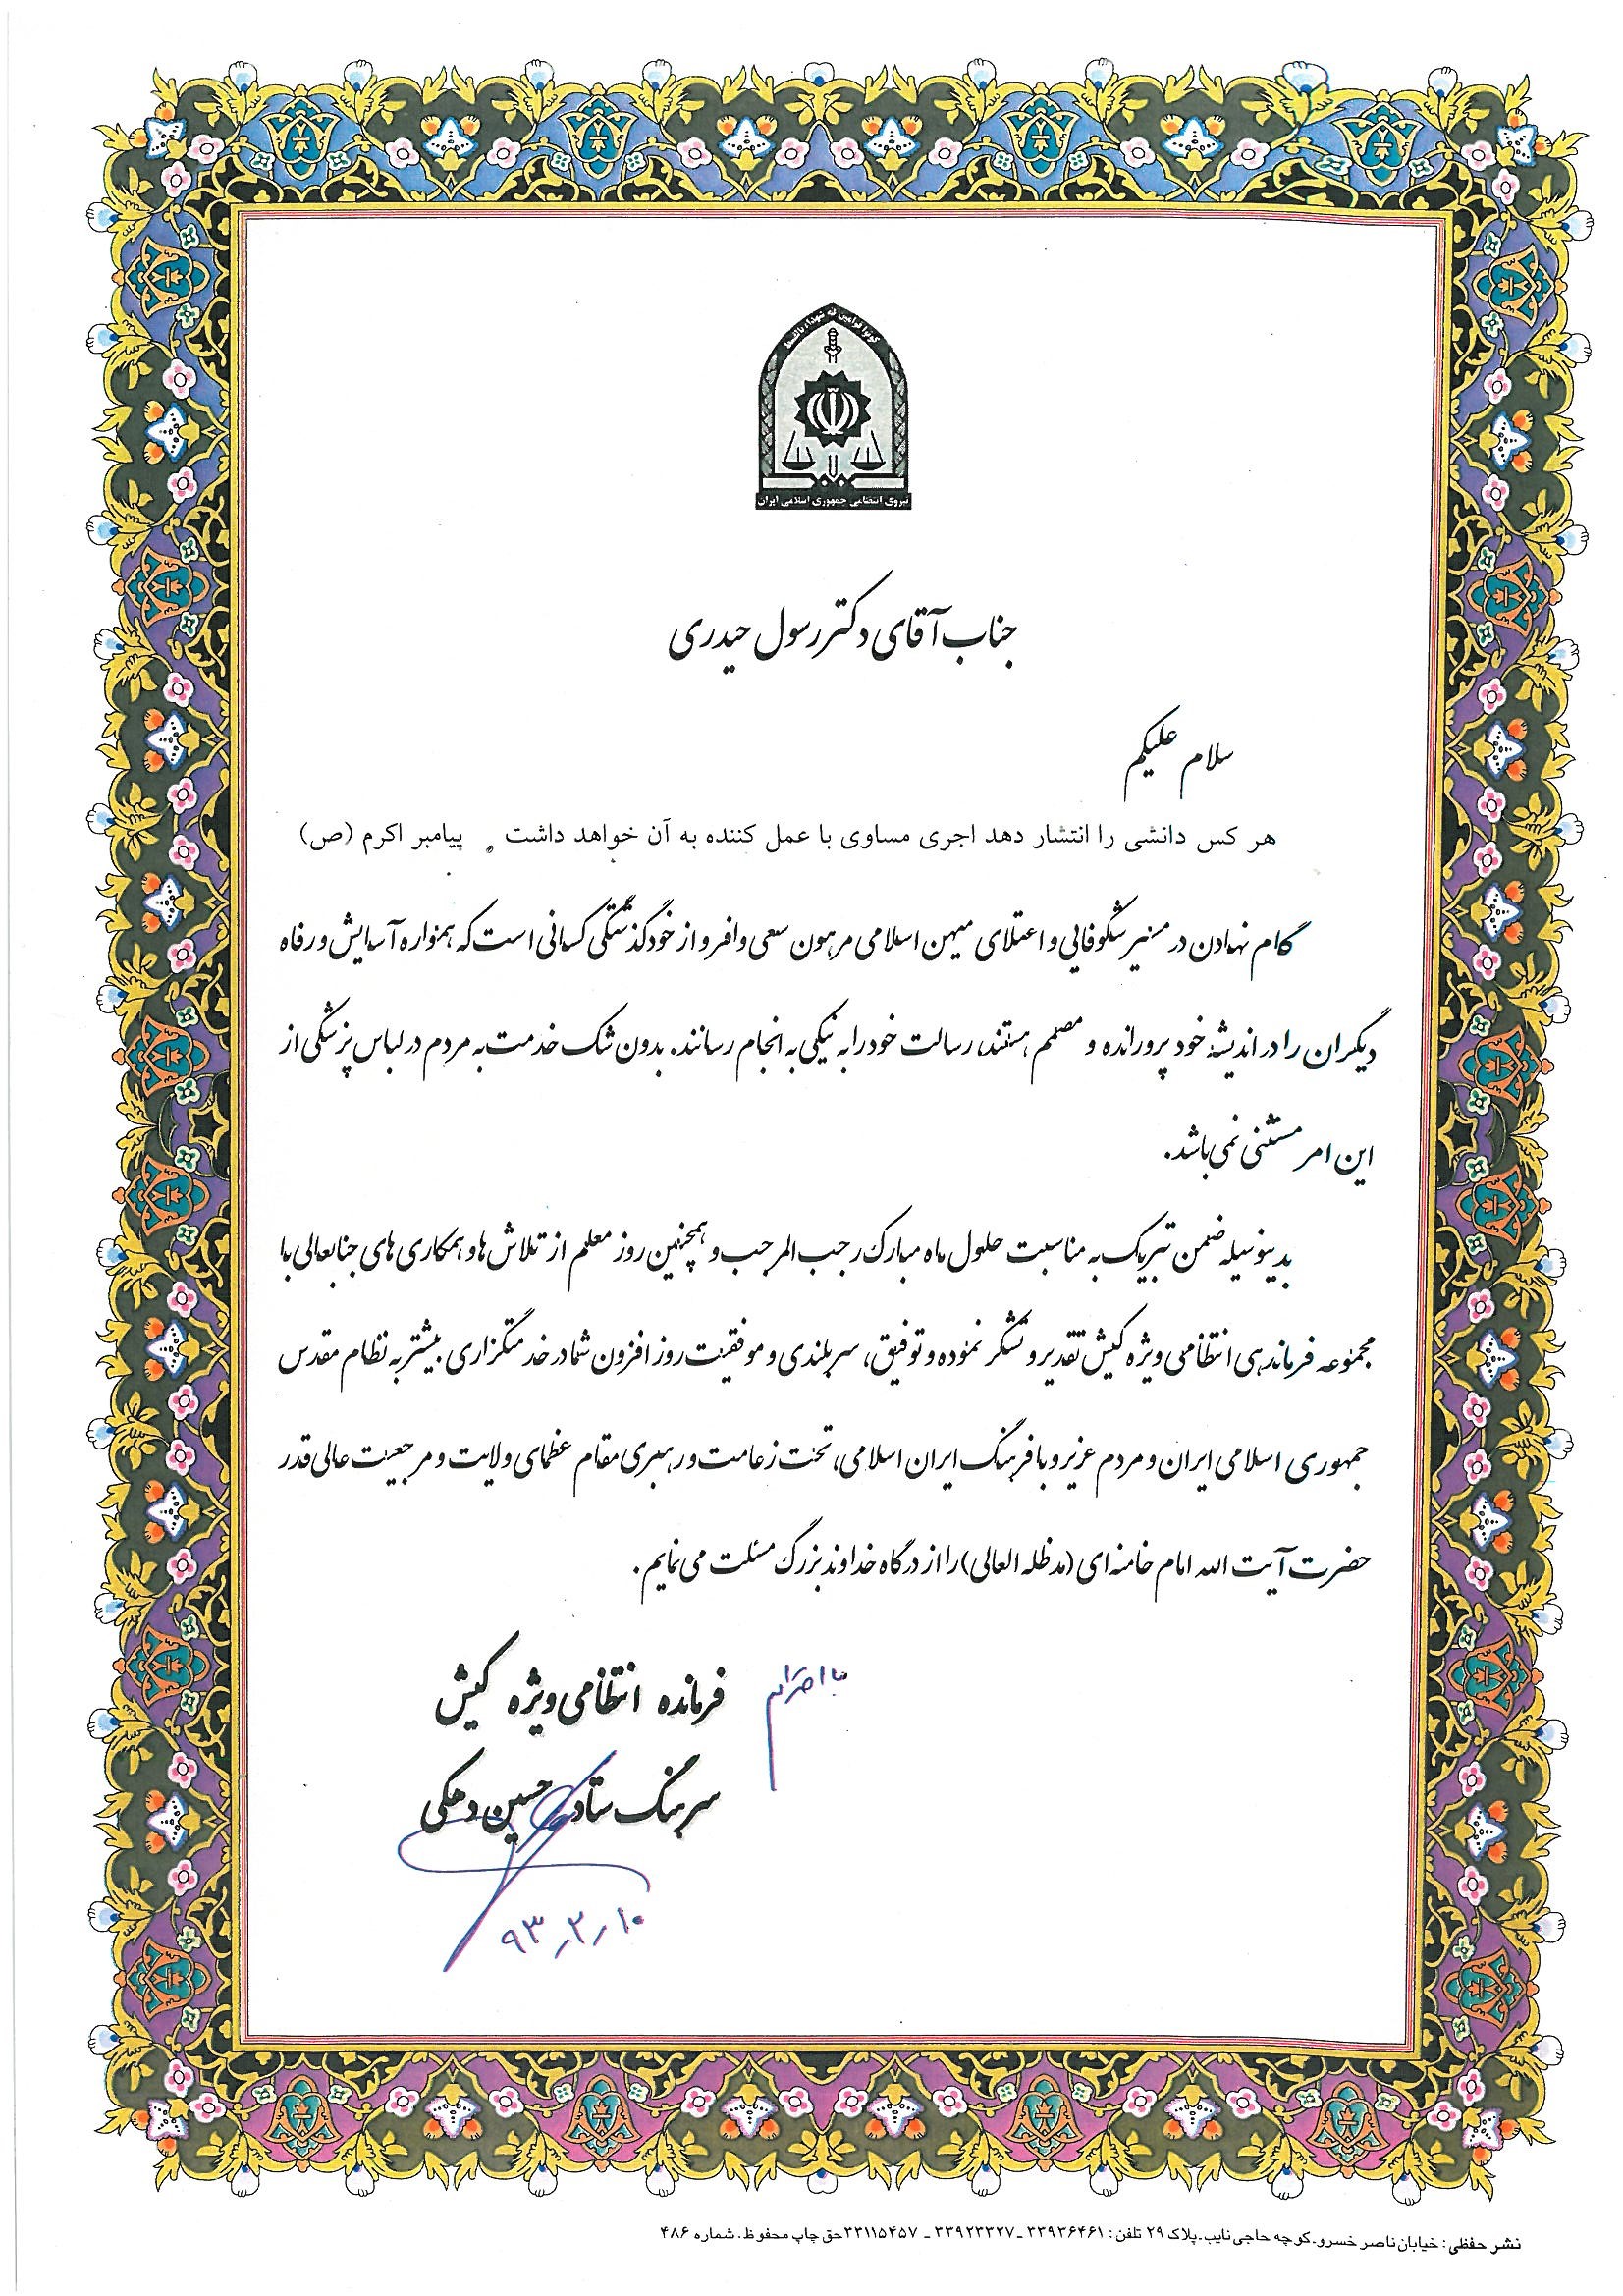 کونوا قوامین لله شهداء بالقسط
نیروی انتظامی جمهوری اسلامی ایران
جناب آقای دکتر رسول حیدری
سلام علیکم
هر کس دانشی را انتشار دهد اجری مساوی با عمل کننده به آن خواهد داشت . پیامبر اکرم (ص)
گام نهادن در مسیر شکوفایی و اعتلای میهن اسلامی مرهون سعی وافر و از خود گذشتگی کسانی است که همواره آسایش و رفاه
دیگران را در اندیشه خود پرورانده و مصمم هستند، رسالت خود را به نیکی به انجام رسانند. بدون شک خدمت به مردم در لباس پزشکی از
این امر مستثنی نمی باشد.
بدینوسیله ضمن تبریک به مناسبت حلول ماه مبارک رجب المرجب و همچنین روز معلم از تلاش ها و همکاری های جنابعالی با
مجموعه فرماندهی انتظامی ویژه کیش تقدیر و تشکر نموده و توفیق، سربلندی و موفقیت روز افزون شما در خدمتگزاری بیشتر به نظام مقدس
جمهوری اسلامی ایران و مردم عزیز و با فرهنگ ایران اسلامی، تحت زعامت و رهبری مقام عظمای ولایت و مرجعیت عالی قدر
حضرت آیت الله امام خامنه ای (مدظله العالی) را از درگاه خداوند بزرگ مسئلت می نمایم.
با احترام
فرمانده انتظامی ویژه کیش
سرهنگ ستاد حسین دهکی
۹۳٫۲٫۱۰
نشر حفظی: خیابان ناصر خسرو.کوچه حاجی نایب.پلاک ۲۹ تلفن: ۳۳۹۳۶۴۶۱ ـ ۳۳۹۲۳۳۲۷ ـ ۳۳۱۱۵۴۵۷ حق چاپ محفوظ. شماره ۴۸۶